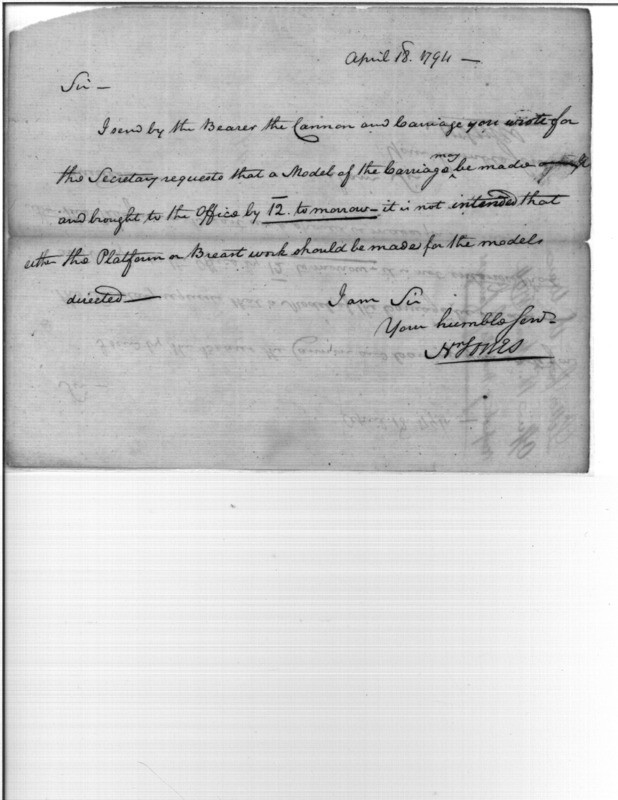 April 18. 1794 —
Sir —
I send by the Bearer the Cannon and Carriage you wrote for
the Secretary requests that a Model of the Carriage may be made
and brought to the Office by 12. tomorrow — it is not intended that
either the Platform or Breast work should be made for the models
directed —
I am Sir
Your humble Servt.
Jn Stagg